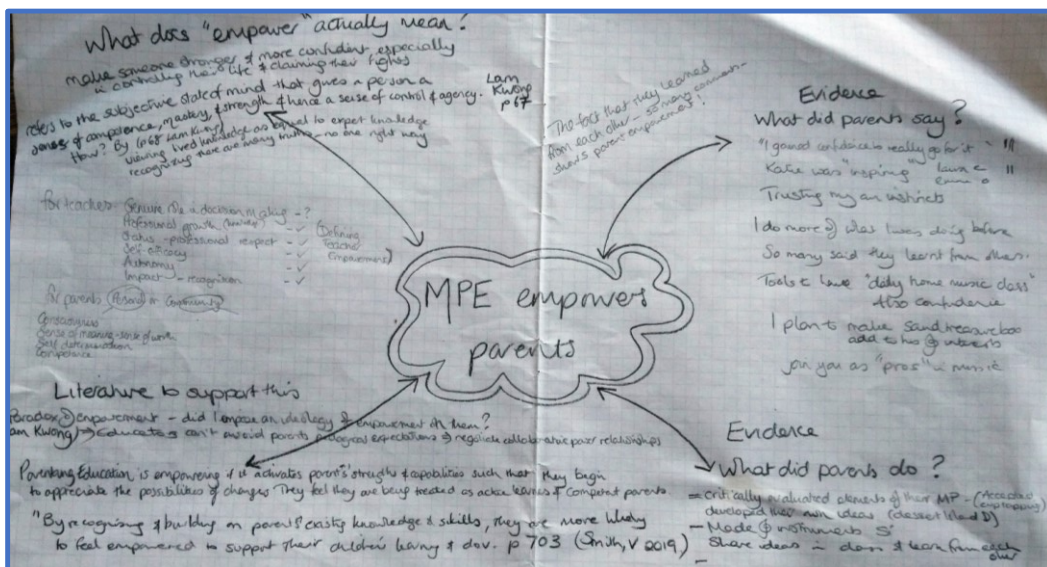 What does "empower" actually mean?
make someone stronger & more confident, especially
in controlling their life & claiming their rights
refers to the subjective state of mind that gives a person a
sense of competence, mastery, & strength & hence a sense of control & agency.
Lam
Kwong
p67
How? By (p68 Lam Kwong)
viewing lived knowledge as equal to expert knowledge
recognizing there are many truths - no one right way
The fact that they learned
from each other - so many comments -
shows parent empowerment!
for teachers - Genuine role in decision making - ?
Professional growth - ✓
Status - professional respect - ✓
Self-efficacy - ✓
Autonomy - ✓
Impact - recognition - ✓
(Defining
Teacher
Empowerment)
for parents (Personal or Community)
Consciousness
Sense of meaning - sense of
Self determination
Competence
MPE empowers
parents
Evidence
What did parents say?
"I gained confidence to really go for it"
Katie was "inspiring" Laura
Emma
Trusting my own instincts
I do more of what I was doing before
So many said they learnt from others.
Tools to have "daily home music class"
Also confidence
I plan to make
add to his
join you as "pros" in music
Literature to support this
Paradox of empowerment - did I impose an ideology of empowerment on them?
Lam Kwong) → Educators can't avoid parents expectations & negotiate collaborative relationships
Parenting Education is empowering if it activates parent's strengths & capabilities such that they begin
to appreciate the possibilities of changes. They feel they are being treated as active learners & competent parents
"By recognising & building on parents' existing knowledge & skills, they are more likely
to feel empowered to support their children's learning & dev. p 703 (Smith, V 2019)
Evidence
What did parents do?
- critically evaluated elements of their MP -
developed their own ideas
- Made instruments
- Share ideas in class & learn from each
other
-